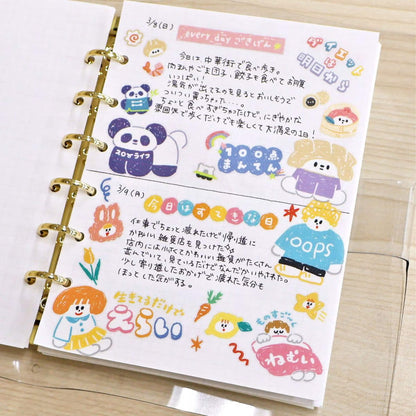 3/8(日)
every day ごきげん
ダイエットは
明日から
今日は中華街で食べ歩き。
肉まんやごま団子、餃子も食べてお腹
いっぱい！
湯気が出てるのを見るとおいしそうで
ついつい買っちゃった…。
ちょっと食べすぎちゃったけど、にぎやかな
雰囲気で歩くだけでも楽しくて大満足の1日！
100点
まんてん
3/9(月)
今日はすてきな日
仕事でちょっと疲れたけど帰り道に
かわいい雑貨店を見つけた
店内には小さくてかわいい雑貨がたくさん
並んでいて、見ているだけでなんだかいやされた。
少し寄り道したおかげで疲れた気分も
ほっとした気がする。
OOPS
生きてるだけで
えらい
ものすご〜く
ねむい